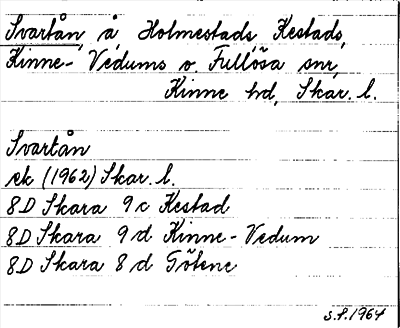 Svartån, å Holmestads, Kestads,
Kinne-Vedums o. Fullösa snr,
Kinne hd, Skar. l.
Svartån
ek (1962) Skar. l.
8D Skara 9c Kestad
8D Skara 9d Kinne-Vedum
8D Skara 8d Götene
S.F. 1964